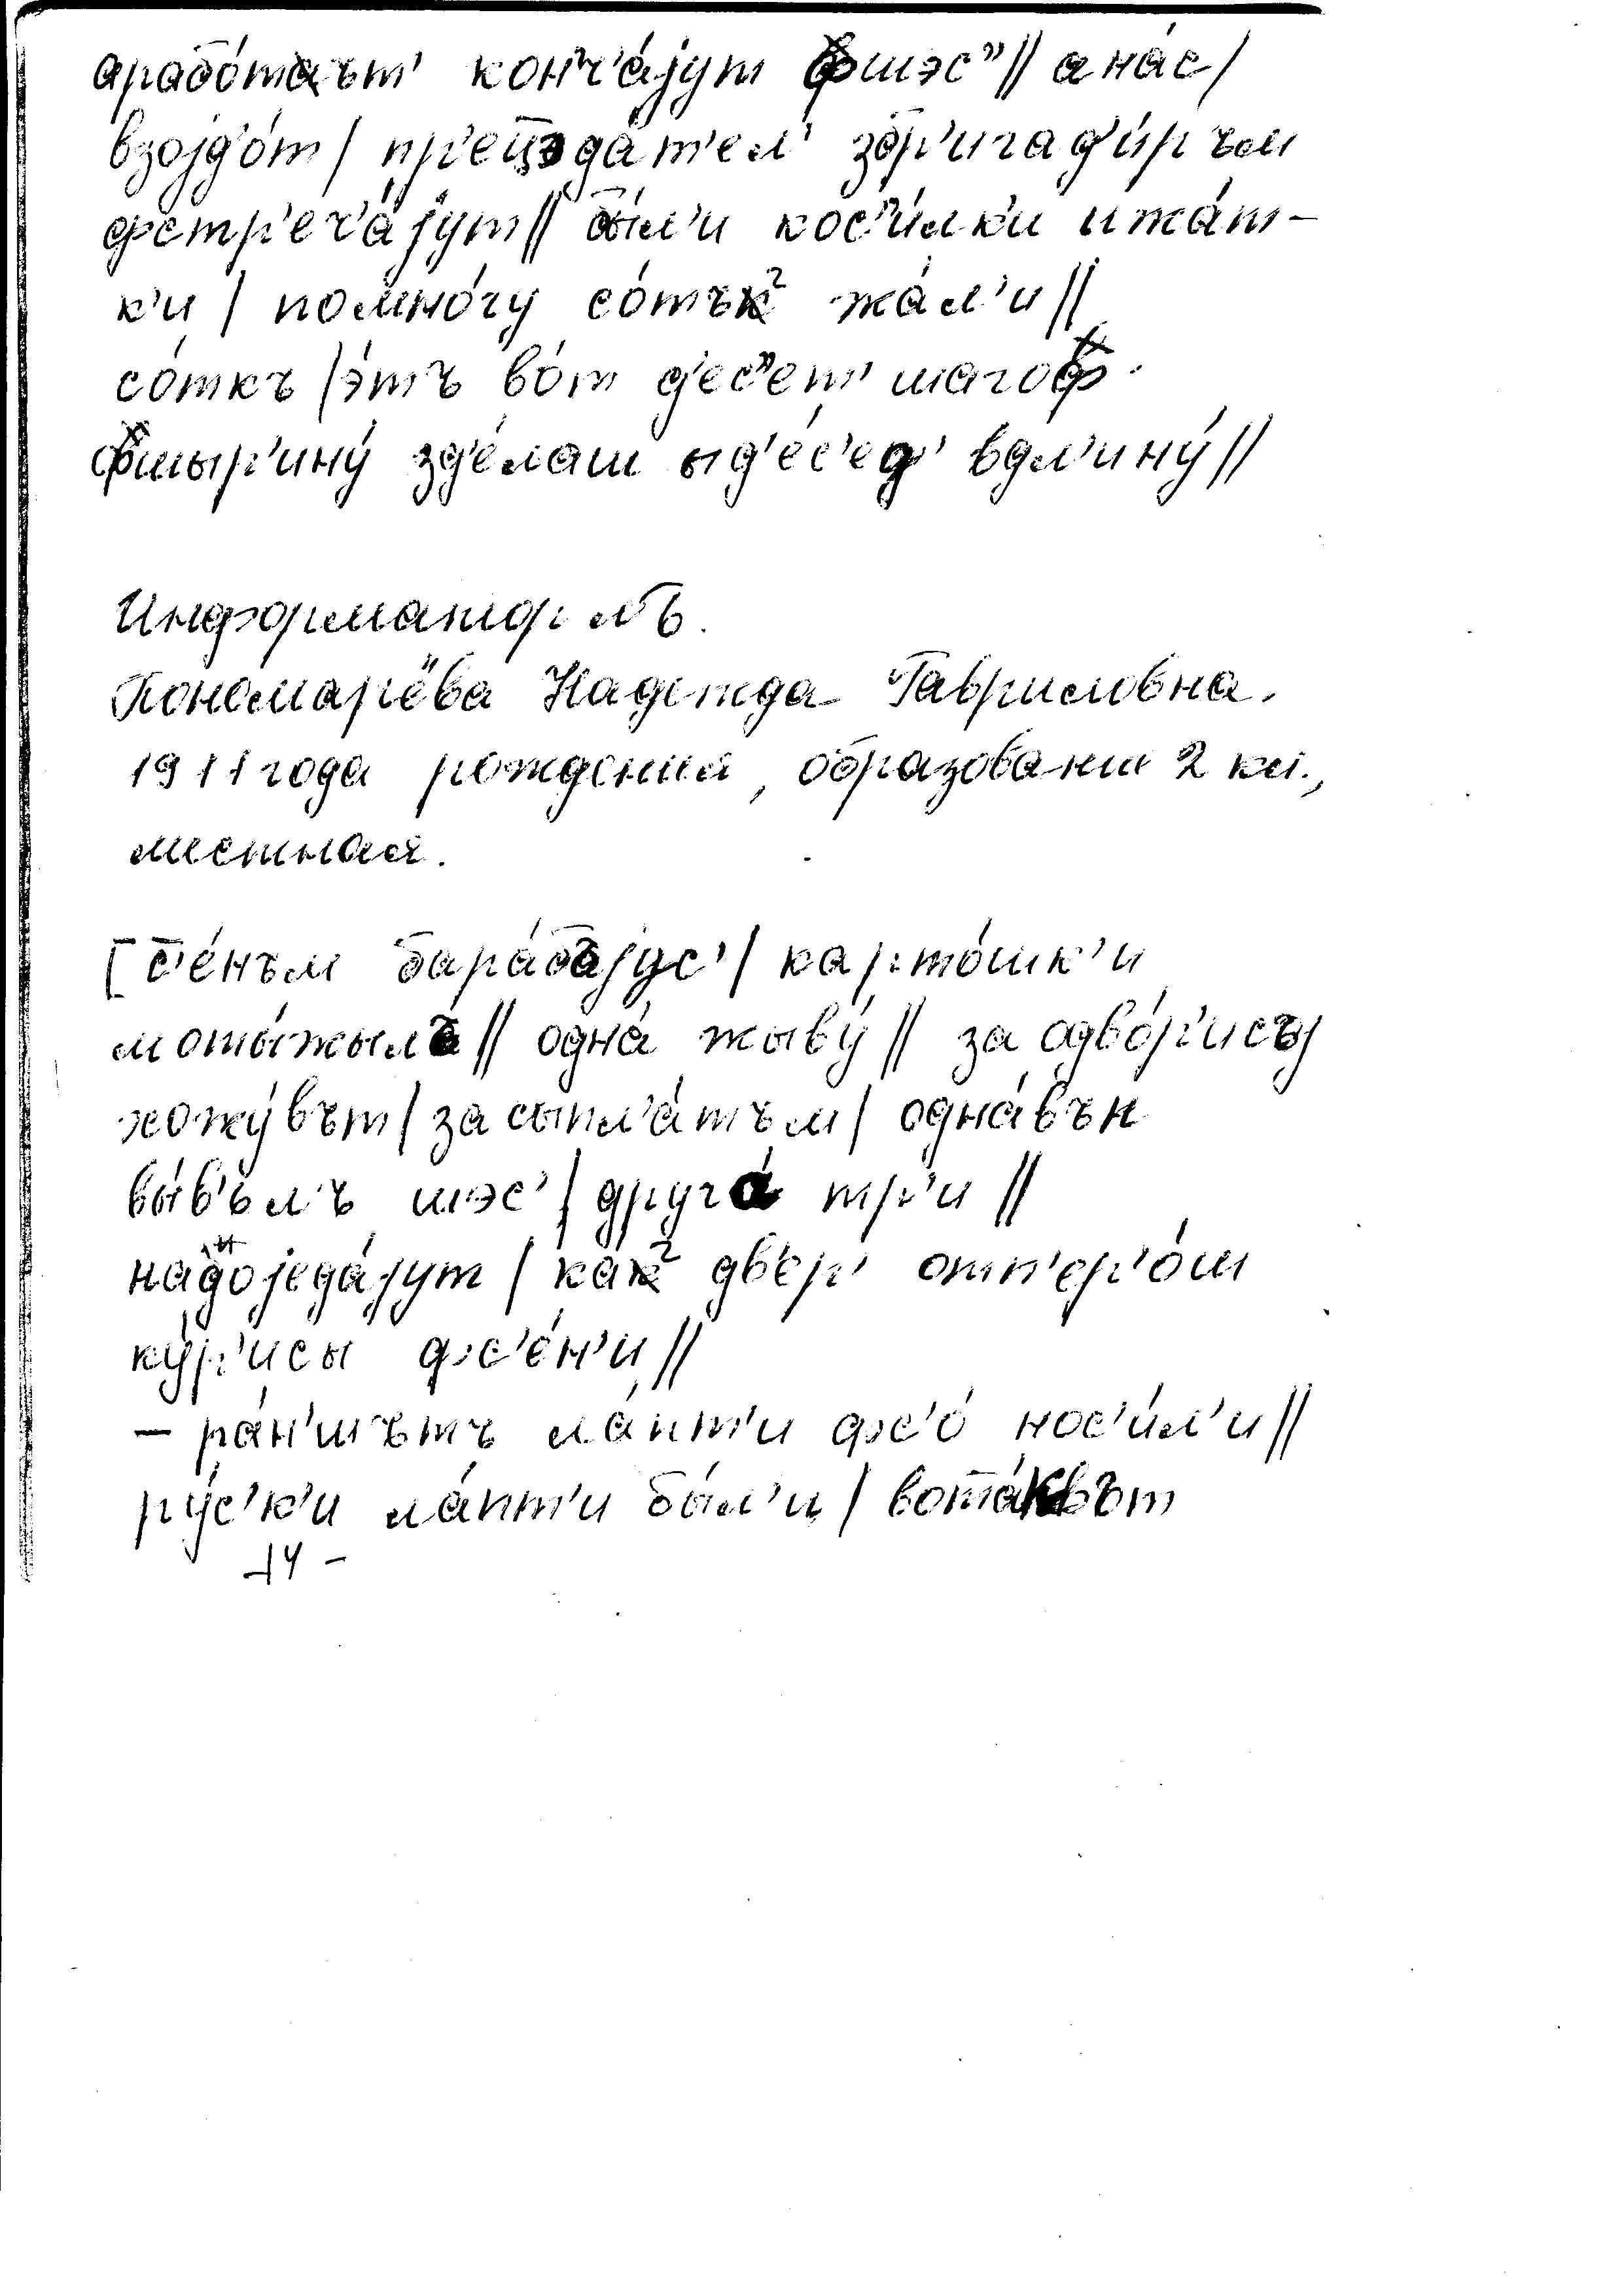 арабо́тъът' конч'а́јут фшэс'' // а на́с /
взојд'о́т / пр'ецэда́т'ел' збр'игад'и́ръм
фстр'еч'а́јут // бы́л'и кос'и́лк'и ижа́т-
к'и / помно́гу со́тък² жа́л'и //
со́ткъ / э́тъ во́т д'ес''ет' шагоф
фшыр'ину́ зд'е́лаш ыд'е́с'ед' вдл'ину́ //
Информатор №6.
Пономарёва Надежда Гавриловна.
1911 года рождения, образование 2 кл.,
местная.
[с'е́нъм бара́бъјус' / карто́шк'и
моты́жылъ // одна́ жыву́ // за одво́р'исъј
хожу́вът / за сыпл'а́тъм / одна́вън
вы́в'ълъ шэс' / друга́ тр'и //
надоједа́јут / как² двер' отп'ер'о́ш
ку́р'исы фс'е́н'и //
— ра́н'шътъ ла́пт'и фс'о́ нос'и́л'и //
ру́с'к'и ла́пт'и бы́л'и / вота́квът
-14-